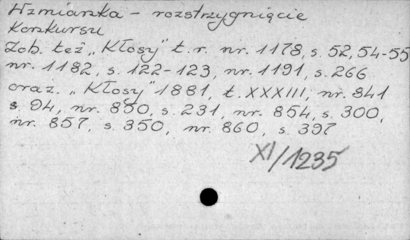 Wzmianka - rozstrzygnięcie
konkursu
Zob. też „Kłosy" t. r. nr. 1178, s. 52, 54-55
nr. 1182, s. 122-123, nr. 1191, s. 266
oraz. „Kłosy" 1881, t. XXXIII, nr. 841
s. 94, nr. 850, s. 231, nr. 854, s. 300,
nr. 857, s. 350, nr. 860, s. 397
XI/1235